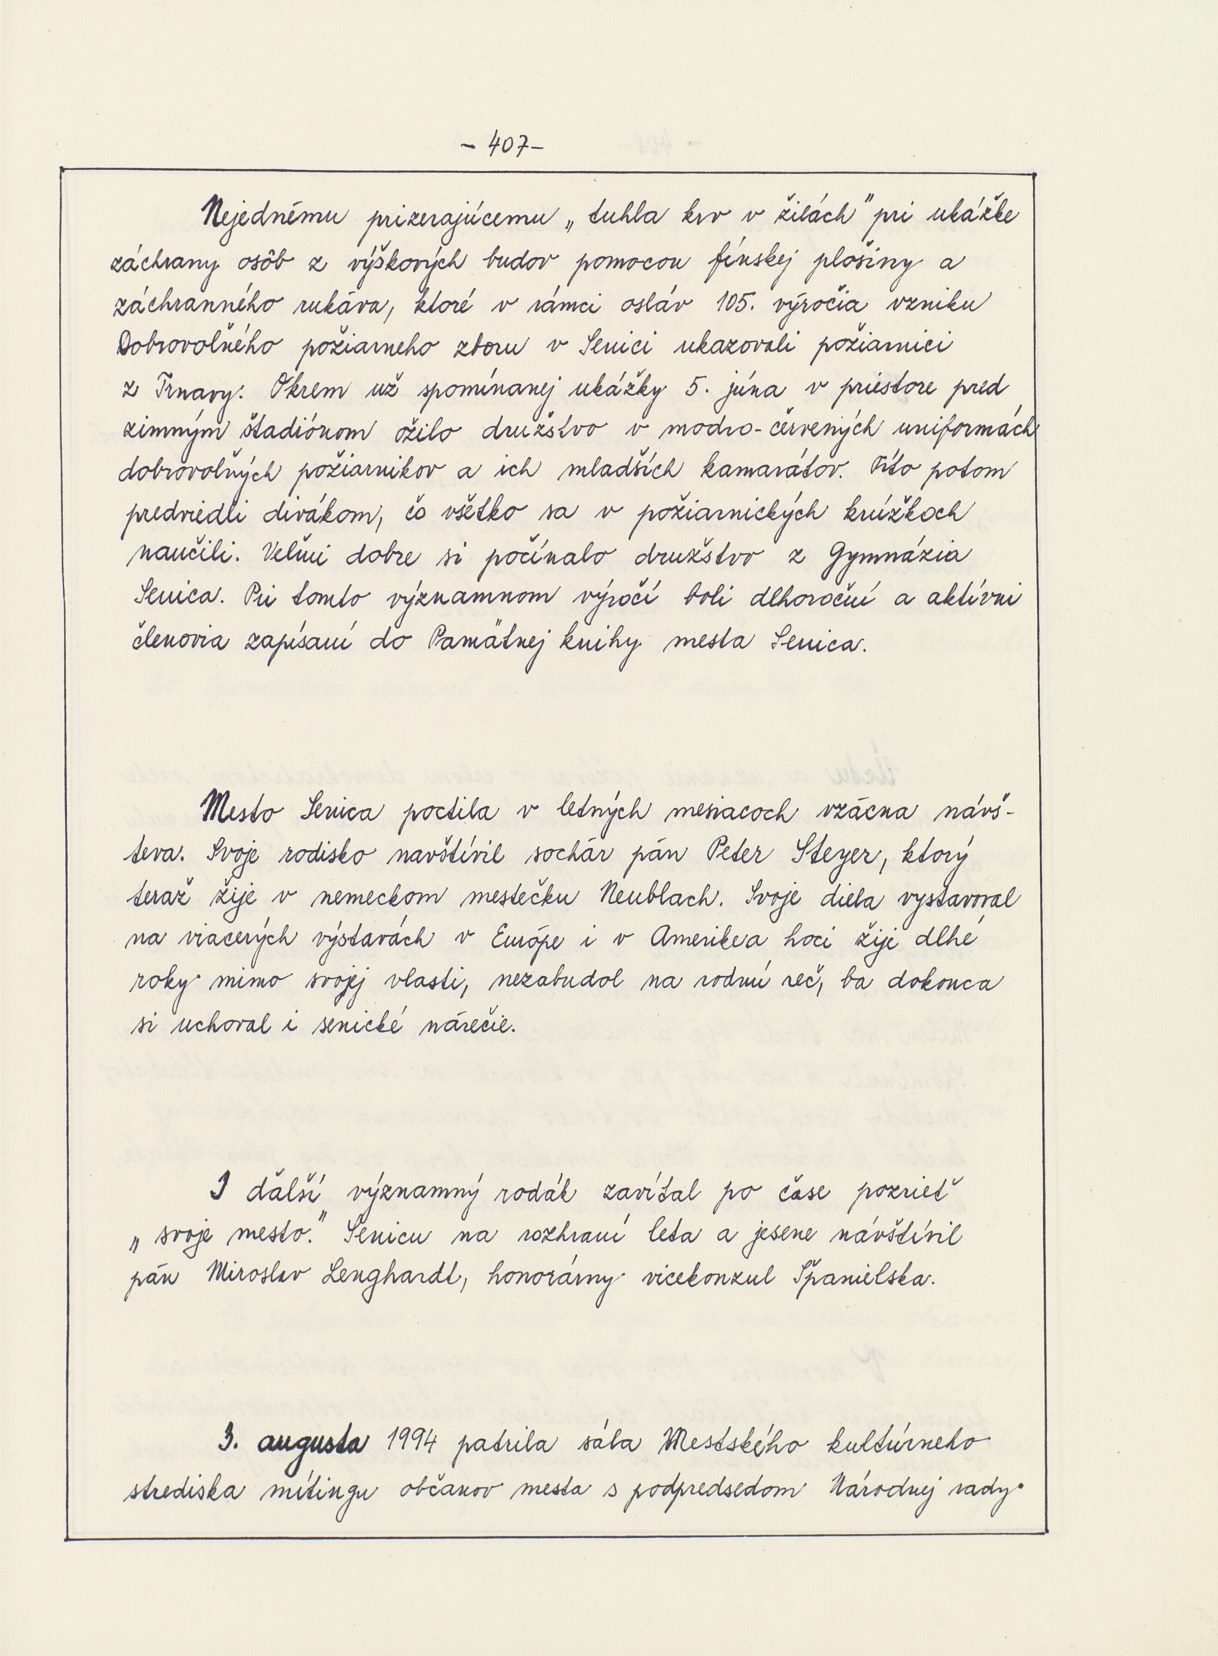 - 407 -
Nejednému prizerajúcemu „tuhla krv v žilách" pri ukážke
záchrany osôb z výškových budov pomocou fínskej plošiny a
záchranného rukáva, ktoré v rámci osláv 105. výročia vzniku
Dobrovoľného požiarneho zboru v Senici ukazovali požiarnici
z Trnavy. Okrem už spomínanej ukážky 5. júna v priestore pred
zimným štadiónom ožilo družstvo v modro-červených uniformách
dobrovoľných požiarnikov a ich mladších kamarátov. Títo potom
predviedli divákom, čo všetko sa v požiarnických krúžkoch
naučili. Veľmi dobre si počínalo družstvo z Gymnázia
Senica. Pri tomto významnom výročí boli dlhoroční a aktívni
členovia zapísaní do Pamätnej knihy mesta Senica.
Mesto Senica poctila v letných mesiacoch vzácna návš-
teva. Svoje rodisko navštívil sochár pán Peter Steyer, ktorý
teraž žije v nemeckom mestečku Neublach. Svoje diela vystavoval
na viacerých výstavách v Európe i v Amerike a hoci žije dlhé
roky mimo svojej vlasti, nezabudol na rodnú reč, ba dokonca
si uchoval i senické nárečie.
I ďalší významný rodák zavítal po čase pozrieť
„svoje mesto." Senicu na rozhraní leta a jesene návštívil
pán Miroslav Lenghardt, honorárny vicekonzul Španielska.
3. augusta 1994 patrila sála Mestského kultúrneho
strediska mítingu občanov mesta s podpredsedom Národnej rady